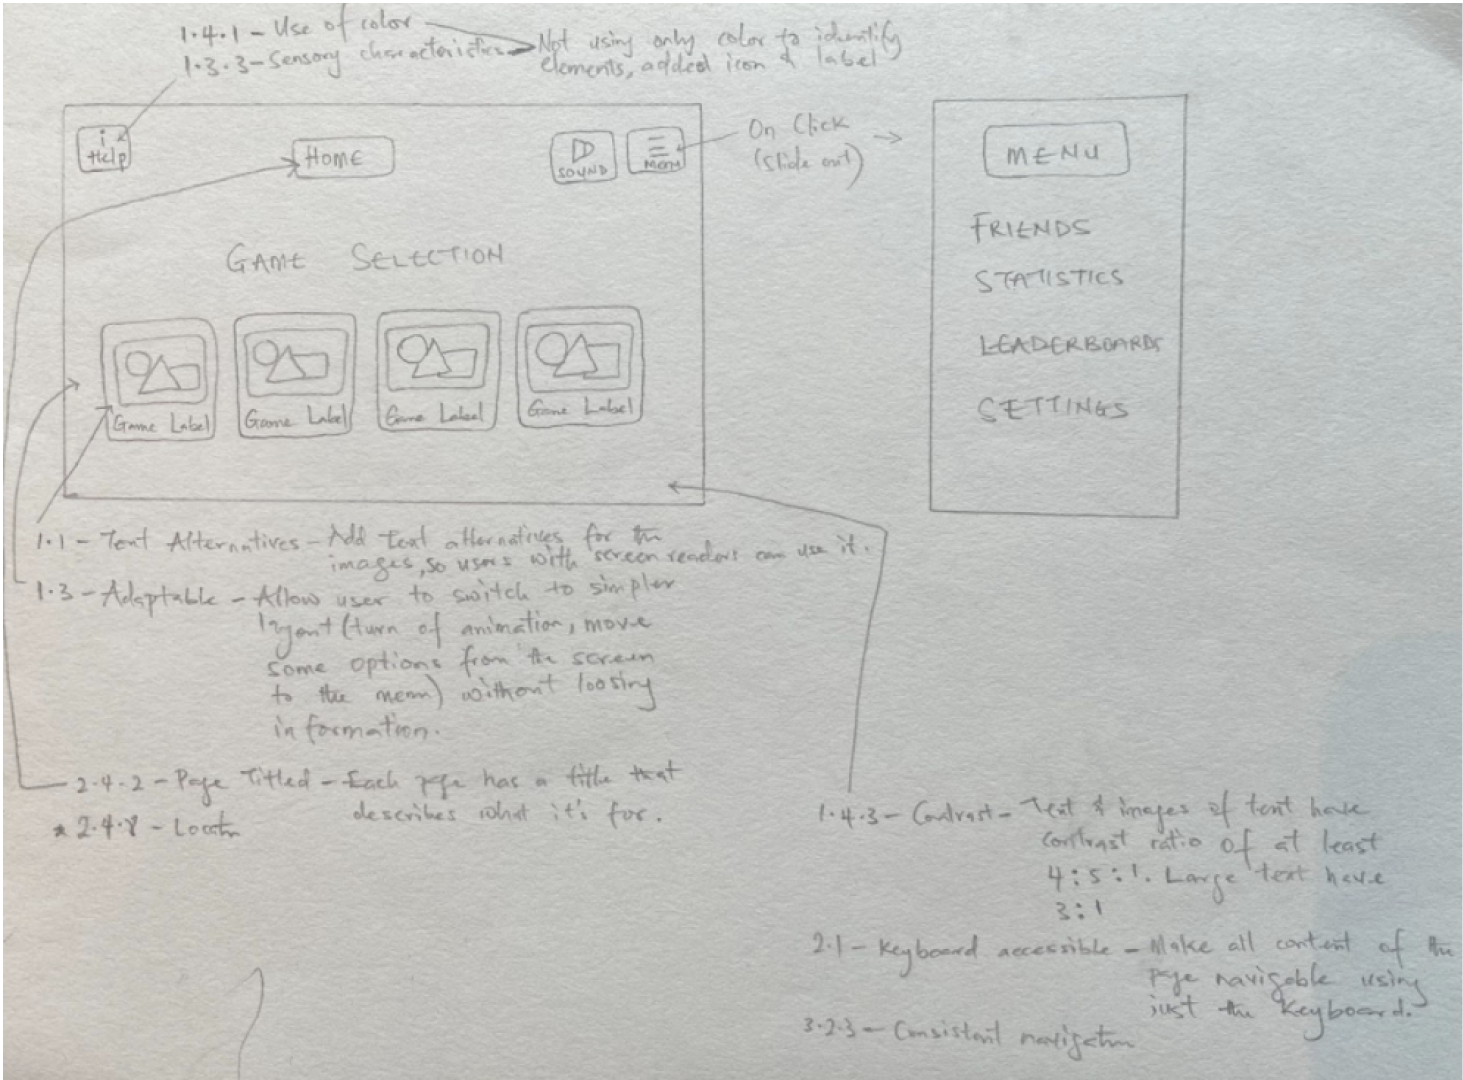 1.4.1 - Use of color
1.3.3 - Sensory characteristics
Not using only color to identify
elements, added icon & label
i
Help
HOME
SOUND
MENU
On Click
(Slide out)
MENU
FRIENDS
STATISTICS
LEADERBOARDS
SETTINGS
GAME SELECTION
Game Label
Game Label
Game Label
Game Label
1.1 - Text Alternatives - Add text alternatives for the
images, so users with screen readers can use it.
1.3 - Adaptable - Allow user to switch to simpler
layout (turn of animation, move
some options from the screen
to the menu) without loosing
information.
2.4.2 - Page Titled - Each page has a title that
describes what it's for.
* 2.4.8 - Locatn
1.4.3 - Contrast - Text & images of text have
contrast ratio of at least
4:5:1. Large text have
3:1
2.1 - Keyboard accessible - Make all content of the
page navigable using
just the keyboard.
3.2.3 - Consistant navigatn